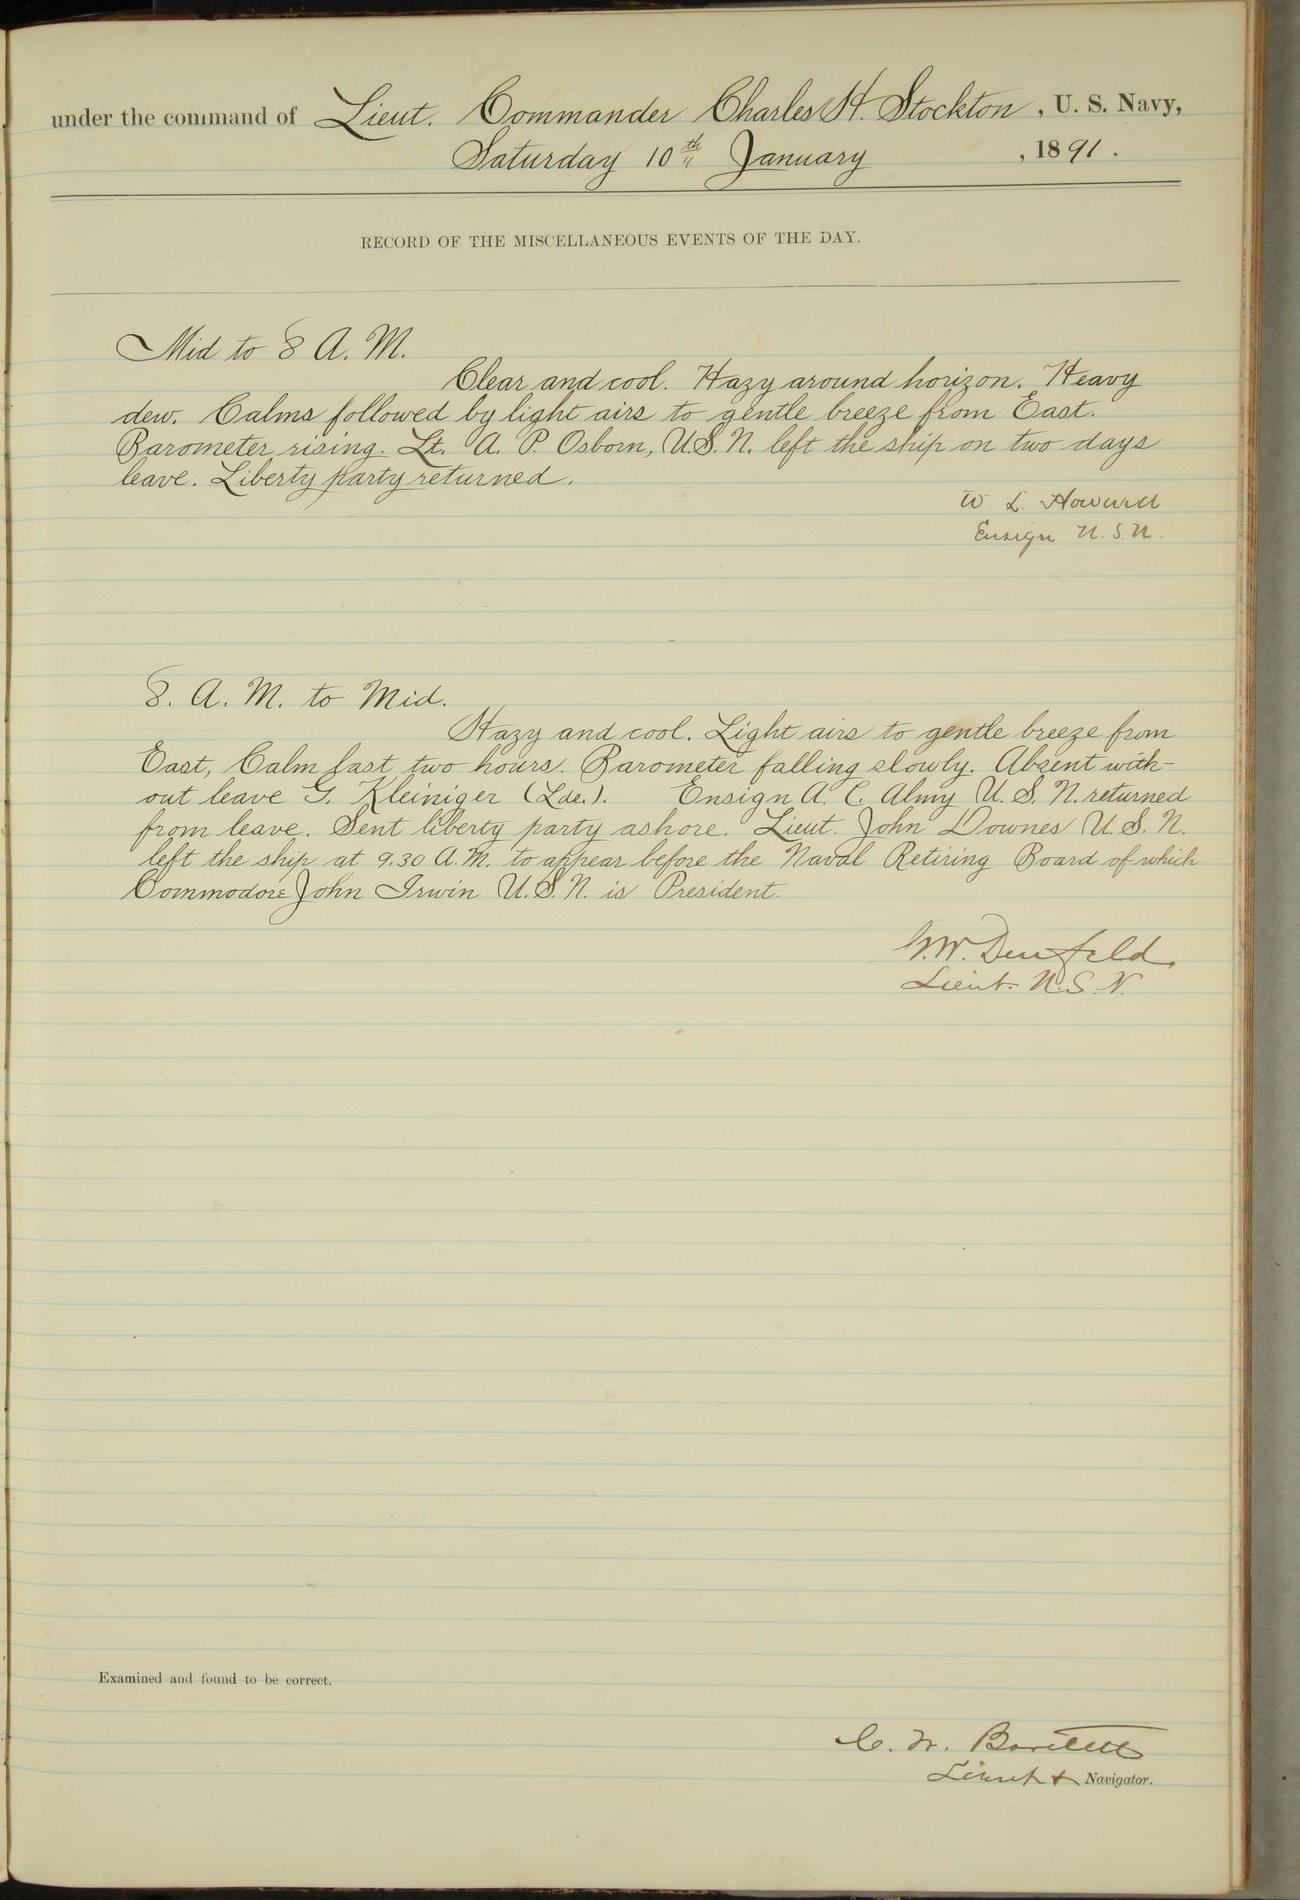 under the command of Lieut. Commander Charles H. Stockton, U. S. Navy,
Saturday 10th January, 1891.
RECORD OF THE MISCELLANEOUS EVENTS OF THE DAY.
Mid to 8 A. M.
Clear and cool. Hazy around horizon. Heavy
dew. Calms followed by light airs to gentle breeze from East.
Barometer rising. Lt. A. P. Osborn, U.S.N. left the ship on two days
leave. Liberty party returned.
W L. Howard
Ensign U.S.N.
8. A. M. to Mid.
Hazy and cool. Light airs to gentle breeze from
East, Calm last two hours. Barometer falling slowly. Absent with-
out leave G. Kleiniger (Lds.). Ensign A. C. Almy U. S. N. returned
from leave. Sent liberty party ashore. Lieut. John Downes U. S. N.
left the ship at 9.30 A.M. to appear before the Naval Retiring Board of which
Commodore John Irwin U.S.N. is President.
G.W. Denfeld
Lieut. U.S.N.
Examined and found to be correct.
C. W. Bartlett
Lieut & Navigator.